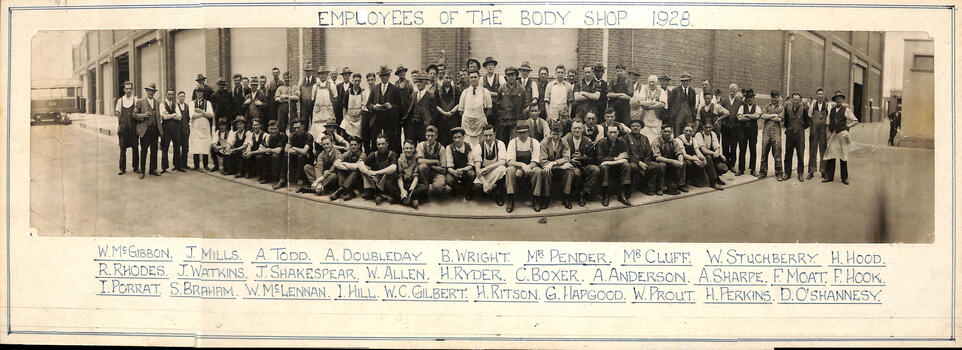 EMPLOYEES OF THE BODY SHOP 1928.
W. McGIBBON. J. MILLS. A. TODD. A. DOUBLEDAY B. WRIGHT. MR PENDER. MR CLUFF. W. STUCHBERRY H. HOOD.
R. RHODES. J. WATKINS. J. SHAKESPEAR. W. ALLEN. H. RYDER. C. BOXER. A. ANDERSON. A. SHARPE. F. MOAT. F. HOOK.
I. PORRAT. S. BRAHAM. W. McLENNAN. J. HILL. W. C. GILBERT. H. RITSON. G. HAPGOOD. W. PROUT. H. PERKINS. D. O'SHANNESY.